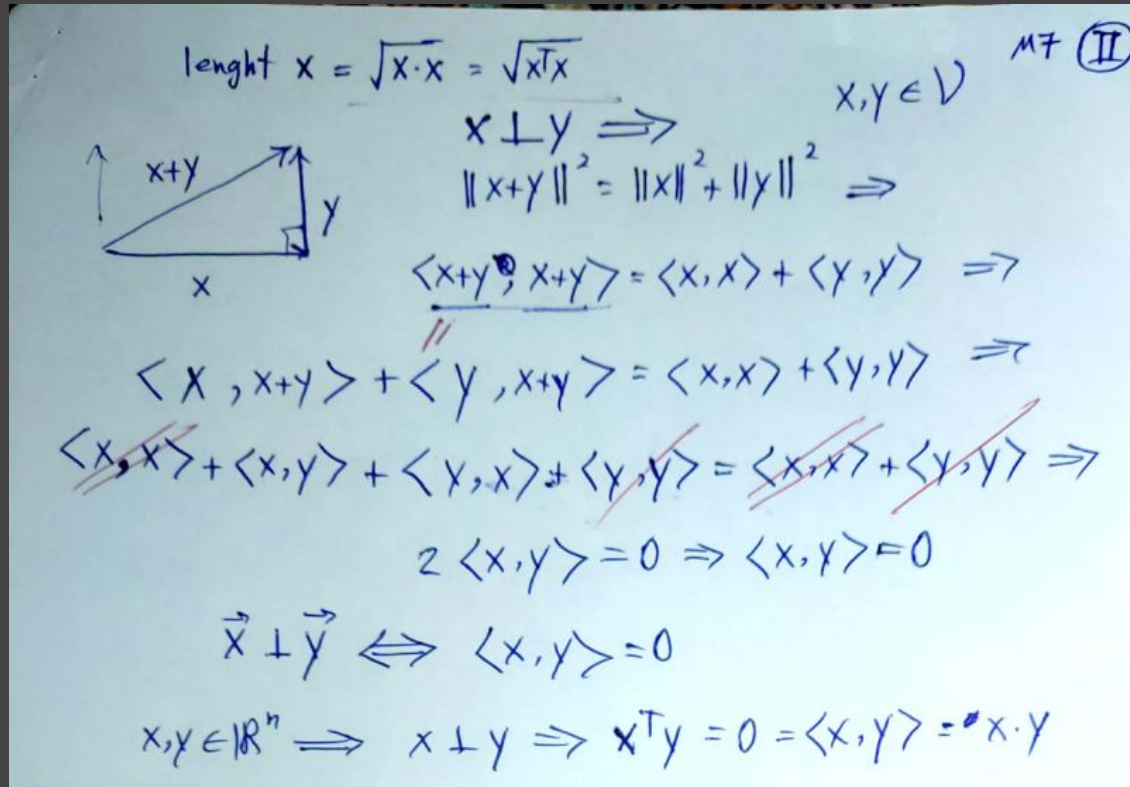 M7 II
lenght x = √x·x = √xᵀx
x,y ∈ V
x ⊥ y ⇒
x+y
y
x
||x+y||² = ||x||² + ||y||² ⇒
<x+y, x+y> = <x,x> + <y,y> ⇒
<x, x+y> + <y, x+y> = <x,x> + <y,y> ⇒
<x,x> + <x,y> + <y,x> + <y,y> = <x,x> + <y,y> ⇒
2 <x,y> = 0 ⇒ <x,y> = 0
x⃗ ⊥ y⃗ ⇔ <x,y> = 0
x,y ∈ ℝⁿ ⇒ x ⊥ y ⇒ xᵀy = 0 = <x,y> = x·y